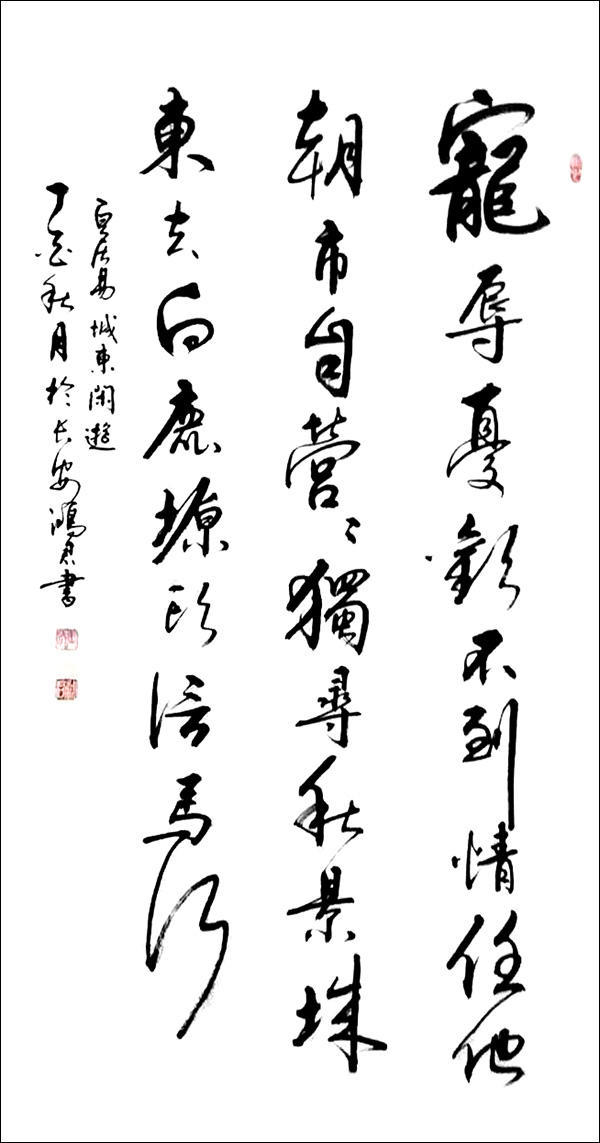 寵辱憂歡不到情任他
朝市自營〻獨尋秋景城
東去白鹿塬頭信馬行
白居易城東閑遊
丁酉秋月於長安鴻君書